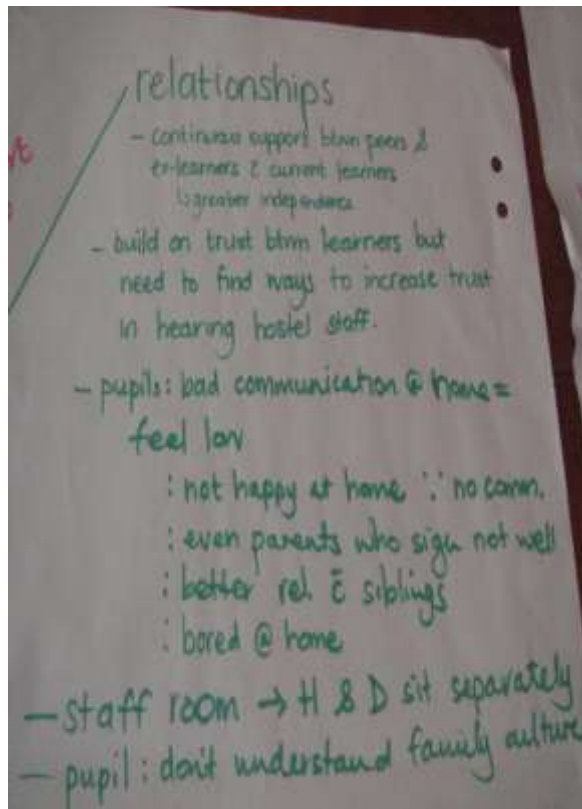 relationships
- continuous support btwn peers &
ex-learners c̄ current learners
↳ greater independence
- build on trust btwn learners but
need to find ways to increase trust
in hearing hostel staff.
- pupils: bad communication @ home =
feel low
: not happy at home ∵ no comm.
: even parents who sign not well
: better rel. c̄ siblings
: bored @ home
- staff room → H & D sit separately
- pupil: don't understand family culture